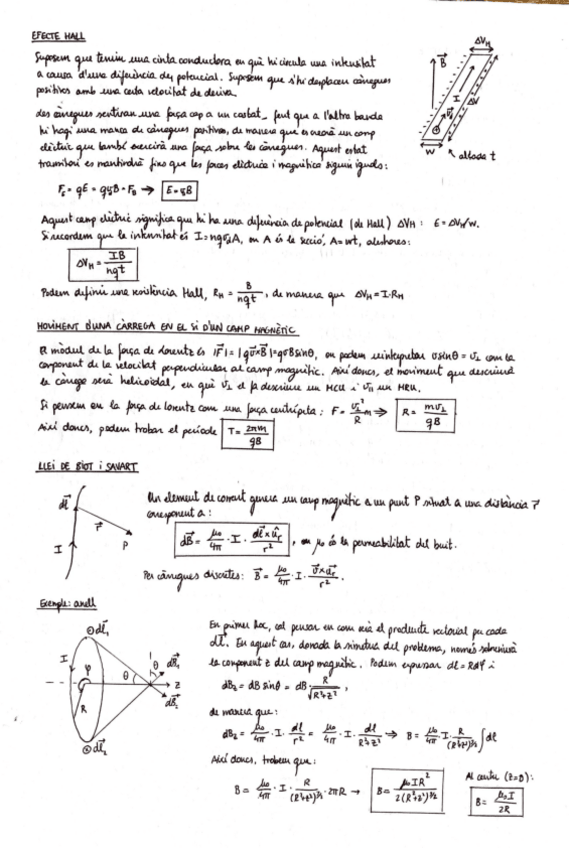 EFECTE HALL
Suposem que tenim una cinta conductora en què hi circula una intensitat
a causa d'una diferència de potencial. Suposem que s'hi desplacen càrregues
positives amb una certa velocitat de deriva.
Les càrregues sentiran una força cap a un costat, fent que a l'altra banda
hi hagi una manca de càrregues positives, de manera que es crearà un camp
elèctric que també exercirà una força sobre les càrregues. Aquest estat
transitori es mantindrà fins que les forces elèctrica i magnètica siguin iguals:
F_E = qE = qvB = F_B → E = vB
ΔV_H
B
I
ΔV
w
allada t
Aquest camp elèctric significa que hi ha una diferència de potencial (de Hall) ΔV_H : E = ΔV_H/w.
Si recordem que la intensitat és I = nqv_dA, on A és la secció, A = wt, aleshores:
ΔV_H = IB/nqt
Podem definir una resistència Hall, R_H = B/nqt, de manera que ΔV_H = I·R_H
MOVIMENT D'UNA CÀRREGA EN EL SI D'UN CAMP MAGNÈTIC
El mòdul de la força de Lorentz és |F| = |qv×B| = qvBsinθ, on podem reinterpretar vsinθ = v⊥ com la
component de la velocitat perpendicular al camp magnètic. Així doncs, el moviment que descriurà
la càrrega serà helicoidal, en què v⊥ el fa descriure un MCU i v∥ un MRU.
Si pensem en la força de Lorentz com una força centrípeta: F = v⊥²/R m ⇒ R = mv⊥/qB
Així doncs, podem trobar el període T = 2πm/qB
LLEI DE BIOT I SAVART
dl
r
P
I
Un element de corrent genera un camp magnètic a un punt P situat a una distància r
corresponent a:
dB = μ₀/4π · I · dl×û_r/r² , on μ₀ és la permeabilitat del buit.
Per càrregues discretes: B = μ₀/4π · I · v×û_r/r² .
Exemple: anell
dl₁
I
φ
R
θ
θ
dB₁
z
dB₂
dl₂
En primer lloc, cal pensar en com serà el producte vectorial per cada
dl. En aquest cas, donada la simetria del problema, només sobreviurà
la component z del camp magnètic. Podem expressar dl = Rdφ i
dB_z = dB sinθ = dB · R/√(R²+z²) ,
de manera que:
dB_z = μ₀/4π · I · dl/r² = μ₀/4π · I · dl/(R²+z²) ⇒ B = μ₀/4π · I · R/(R²+z²)^3/2 ∫dl
Així doncs, trobem que:
B = μ₀/4π · I · R/(R²+z²)^3/2 · 2πR → B = μ₀IR²/2(R²+z²)^3/2
Al centre (z=0):
B = μ₀I/2R